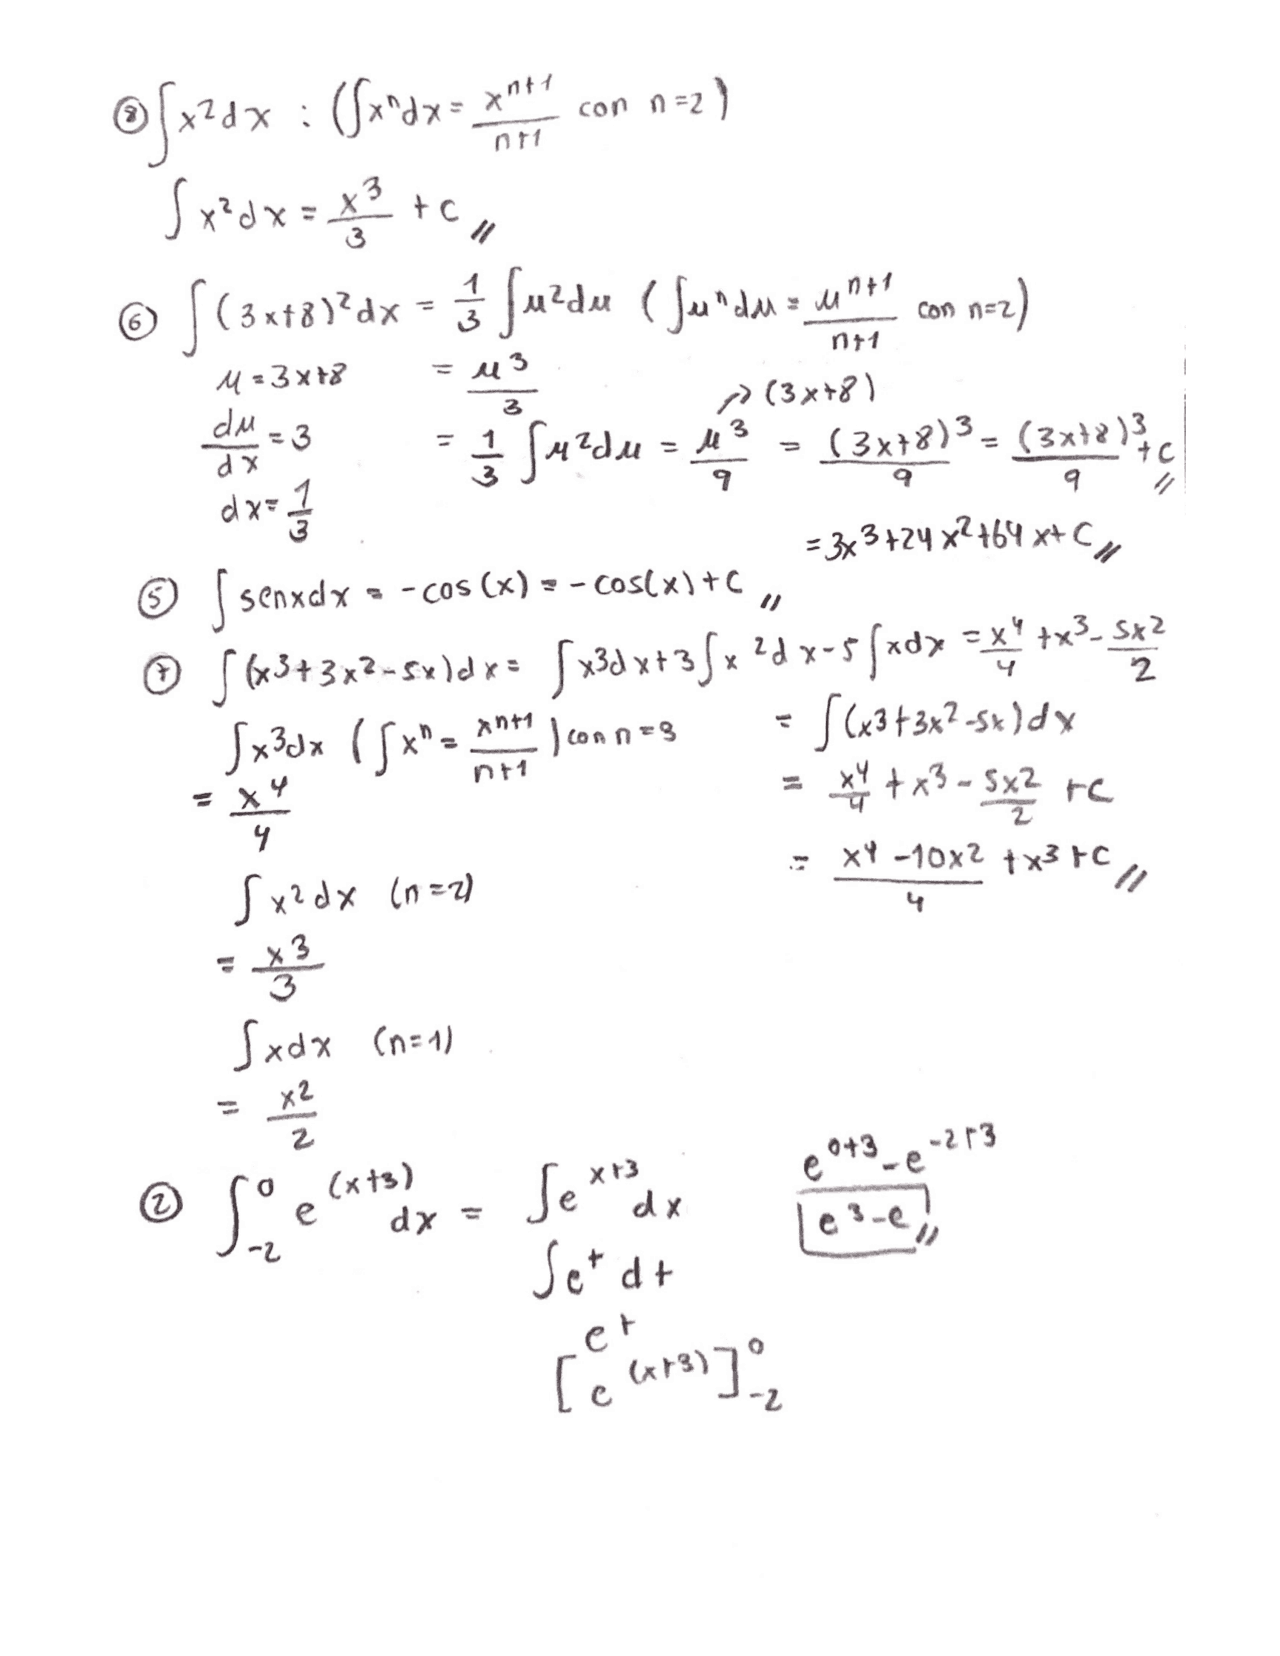 ⑧ ∫x²dx : (∫xⁿdx = xⁿ⁺¹/n+1 con n=2)
∫x²dx = x³/3 + c //
⑥ ∫(3x+8)²dx = 1/3 ∫μ²dμ (∫μⁿdμ = μⁿ⁺¹/n+1 con n=2)
μ = 3x+8 = μ³/3
→ (3x+8)
dμ/dx = 3 = 1/3 ∫μ²dμ = μ³/9 = (3x+8)³/9 = (3x+8)³/9 + c //
dx = 1/3
= 3x³+24x²+64x+C //
⑤ ∫senxdx = -cos(x) = -cos(x)+C //
⑦ ∫(x³+3x²-5x)dx = ∫x³dx+3∫x²dx-5∫xdx = x⁴/4 + x³ - 5x²/2
∫x³dx (∫xⁿ = xⁿ⁺¹/n+1) con n=3 = ∫(x³+3x²-5x)dx
= x⁴/4 = x⁴/4 + x³ - 5x²/2 + C
= x⁴-10x²/4 + x³+C //
∫x²dx (n=2)
= x³/3
∫xdx (n=1)
= x²/2
② ∫₋₂⁰ e^(x+3) dx = ∫e^x+3 dx
∫e^t dt
e^t
[e^(x+3)]₋₂⁰
e^0+3 - e^-2+3
e³-e //